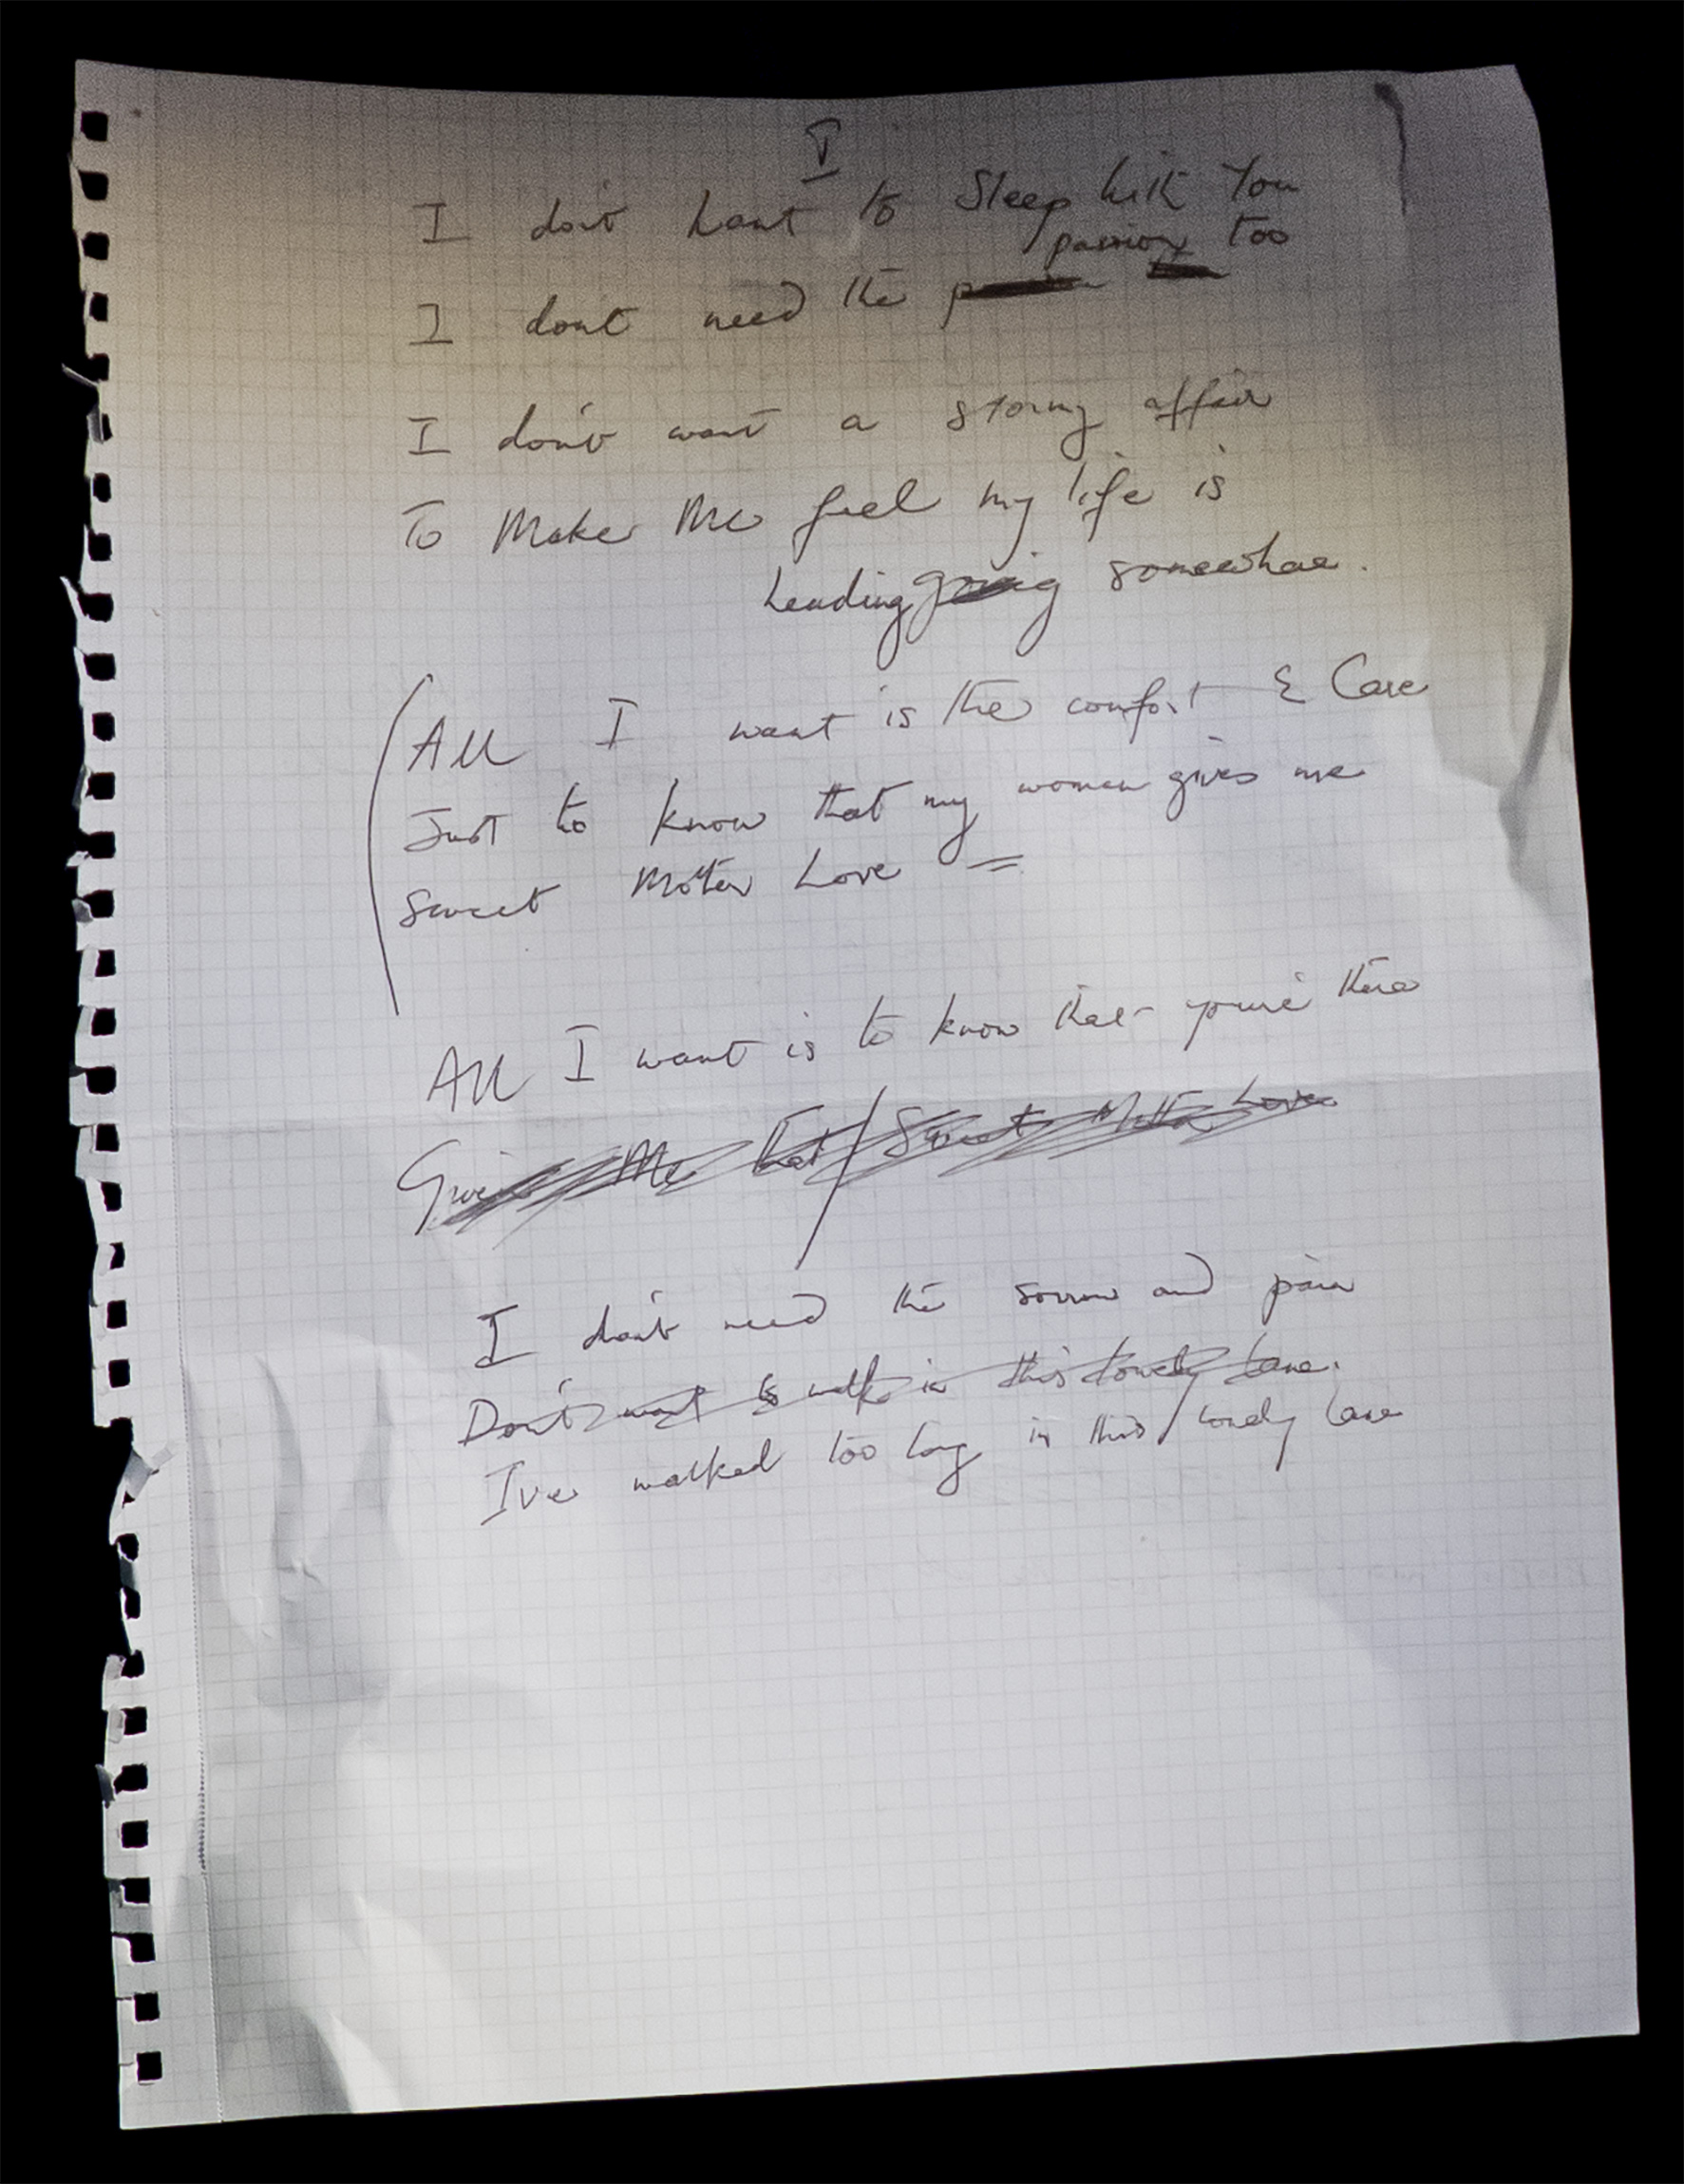 I
I don't want to Sleep with You
passion too
I dont need the
I don't want a stormy affair
To Make Me feel my life is
heading going somewhere.
All I want is the comfort & Care
Just to know that my woman gives me
Sweet Mother Love =
All I want is to know that you're there
Giving Me that / Sweet Mother Love
I don't need the sorrow and pain
Don't want to walk in this lonely lane.
I've walked too long in this lonely lane